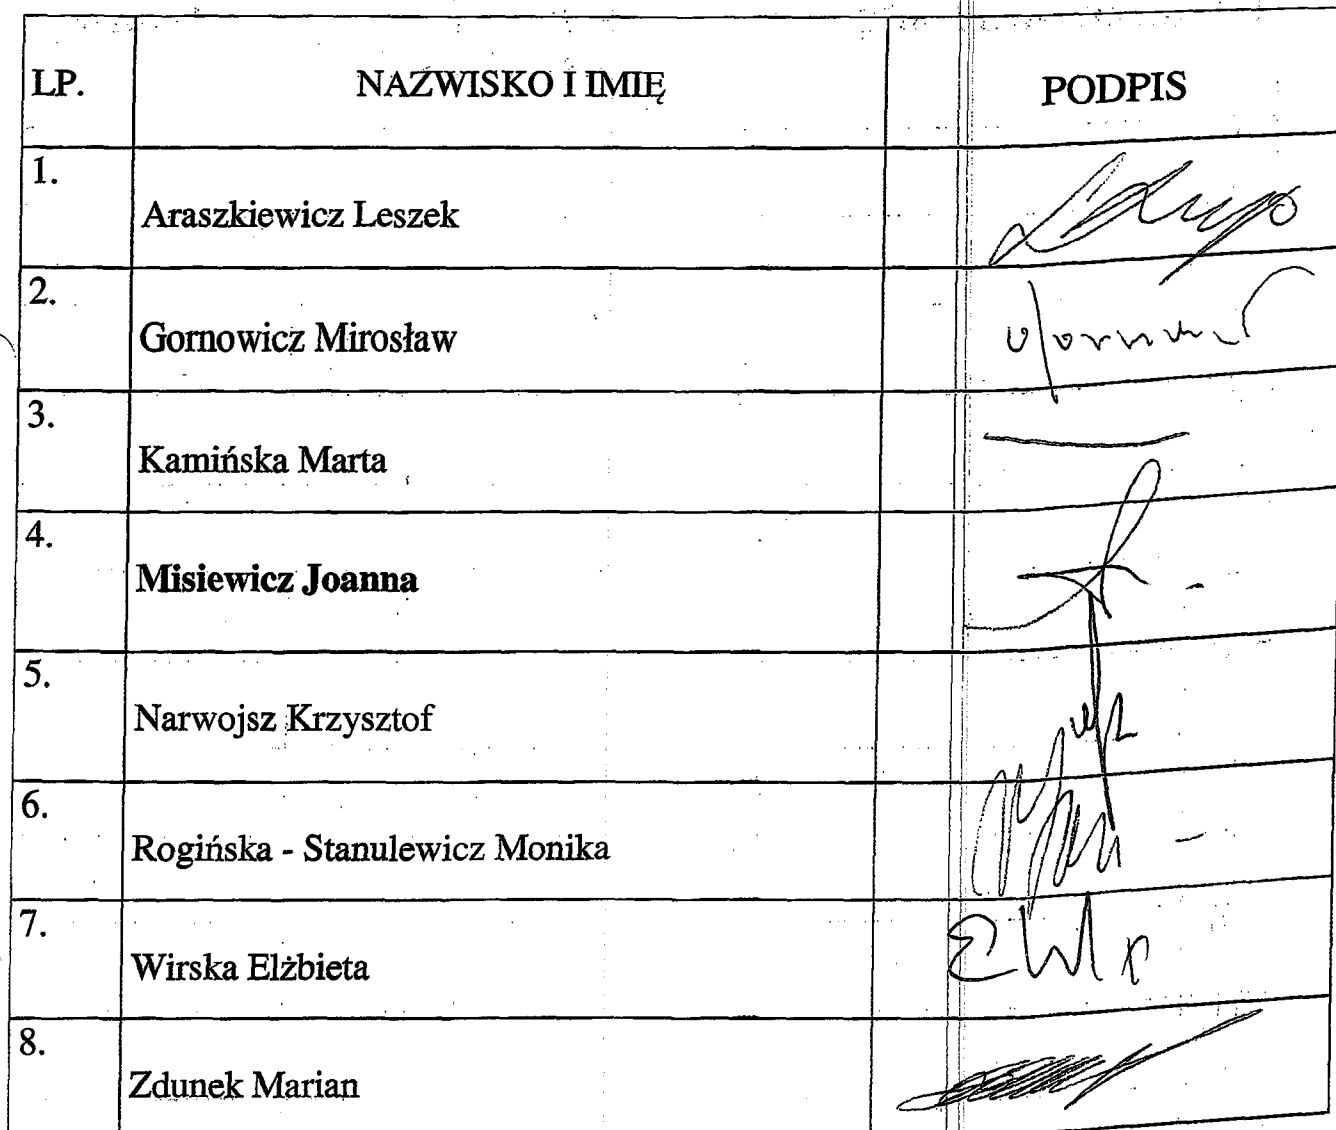 LP. NAZWISKO I IMIĘ PODPIS
1. Araszkiewicz Leszek
2. Gornowicz Mirosław
3. Kamińska Marta
4. Misiewicz Joanna
5. Narwojsz Krzysztof
6. Rogińska - Stanulewicz Monika
7. Wirska Elżbieta
8. Zdunek Marian